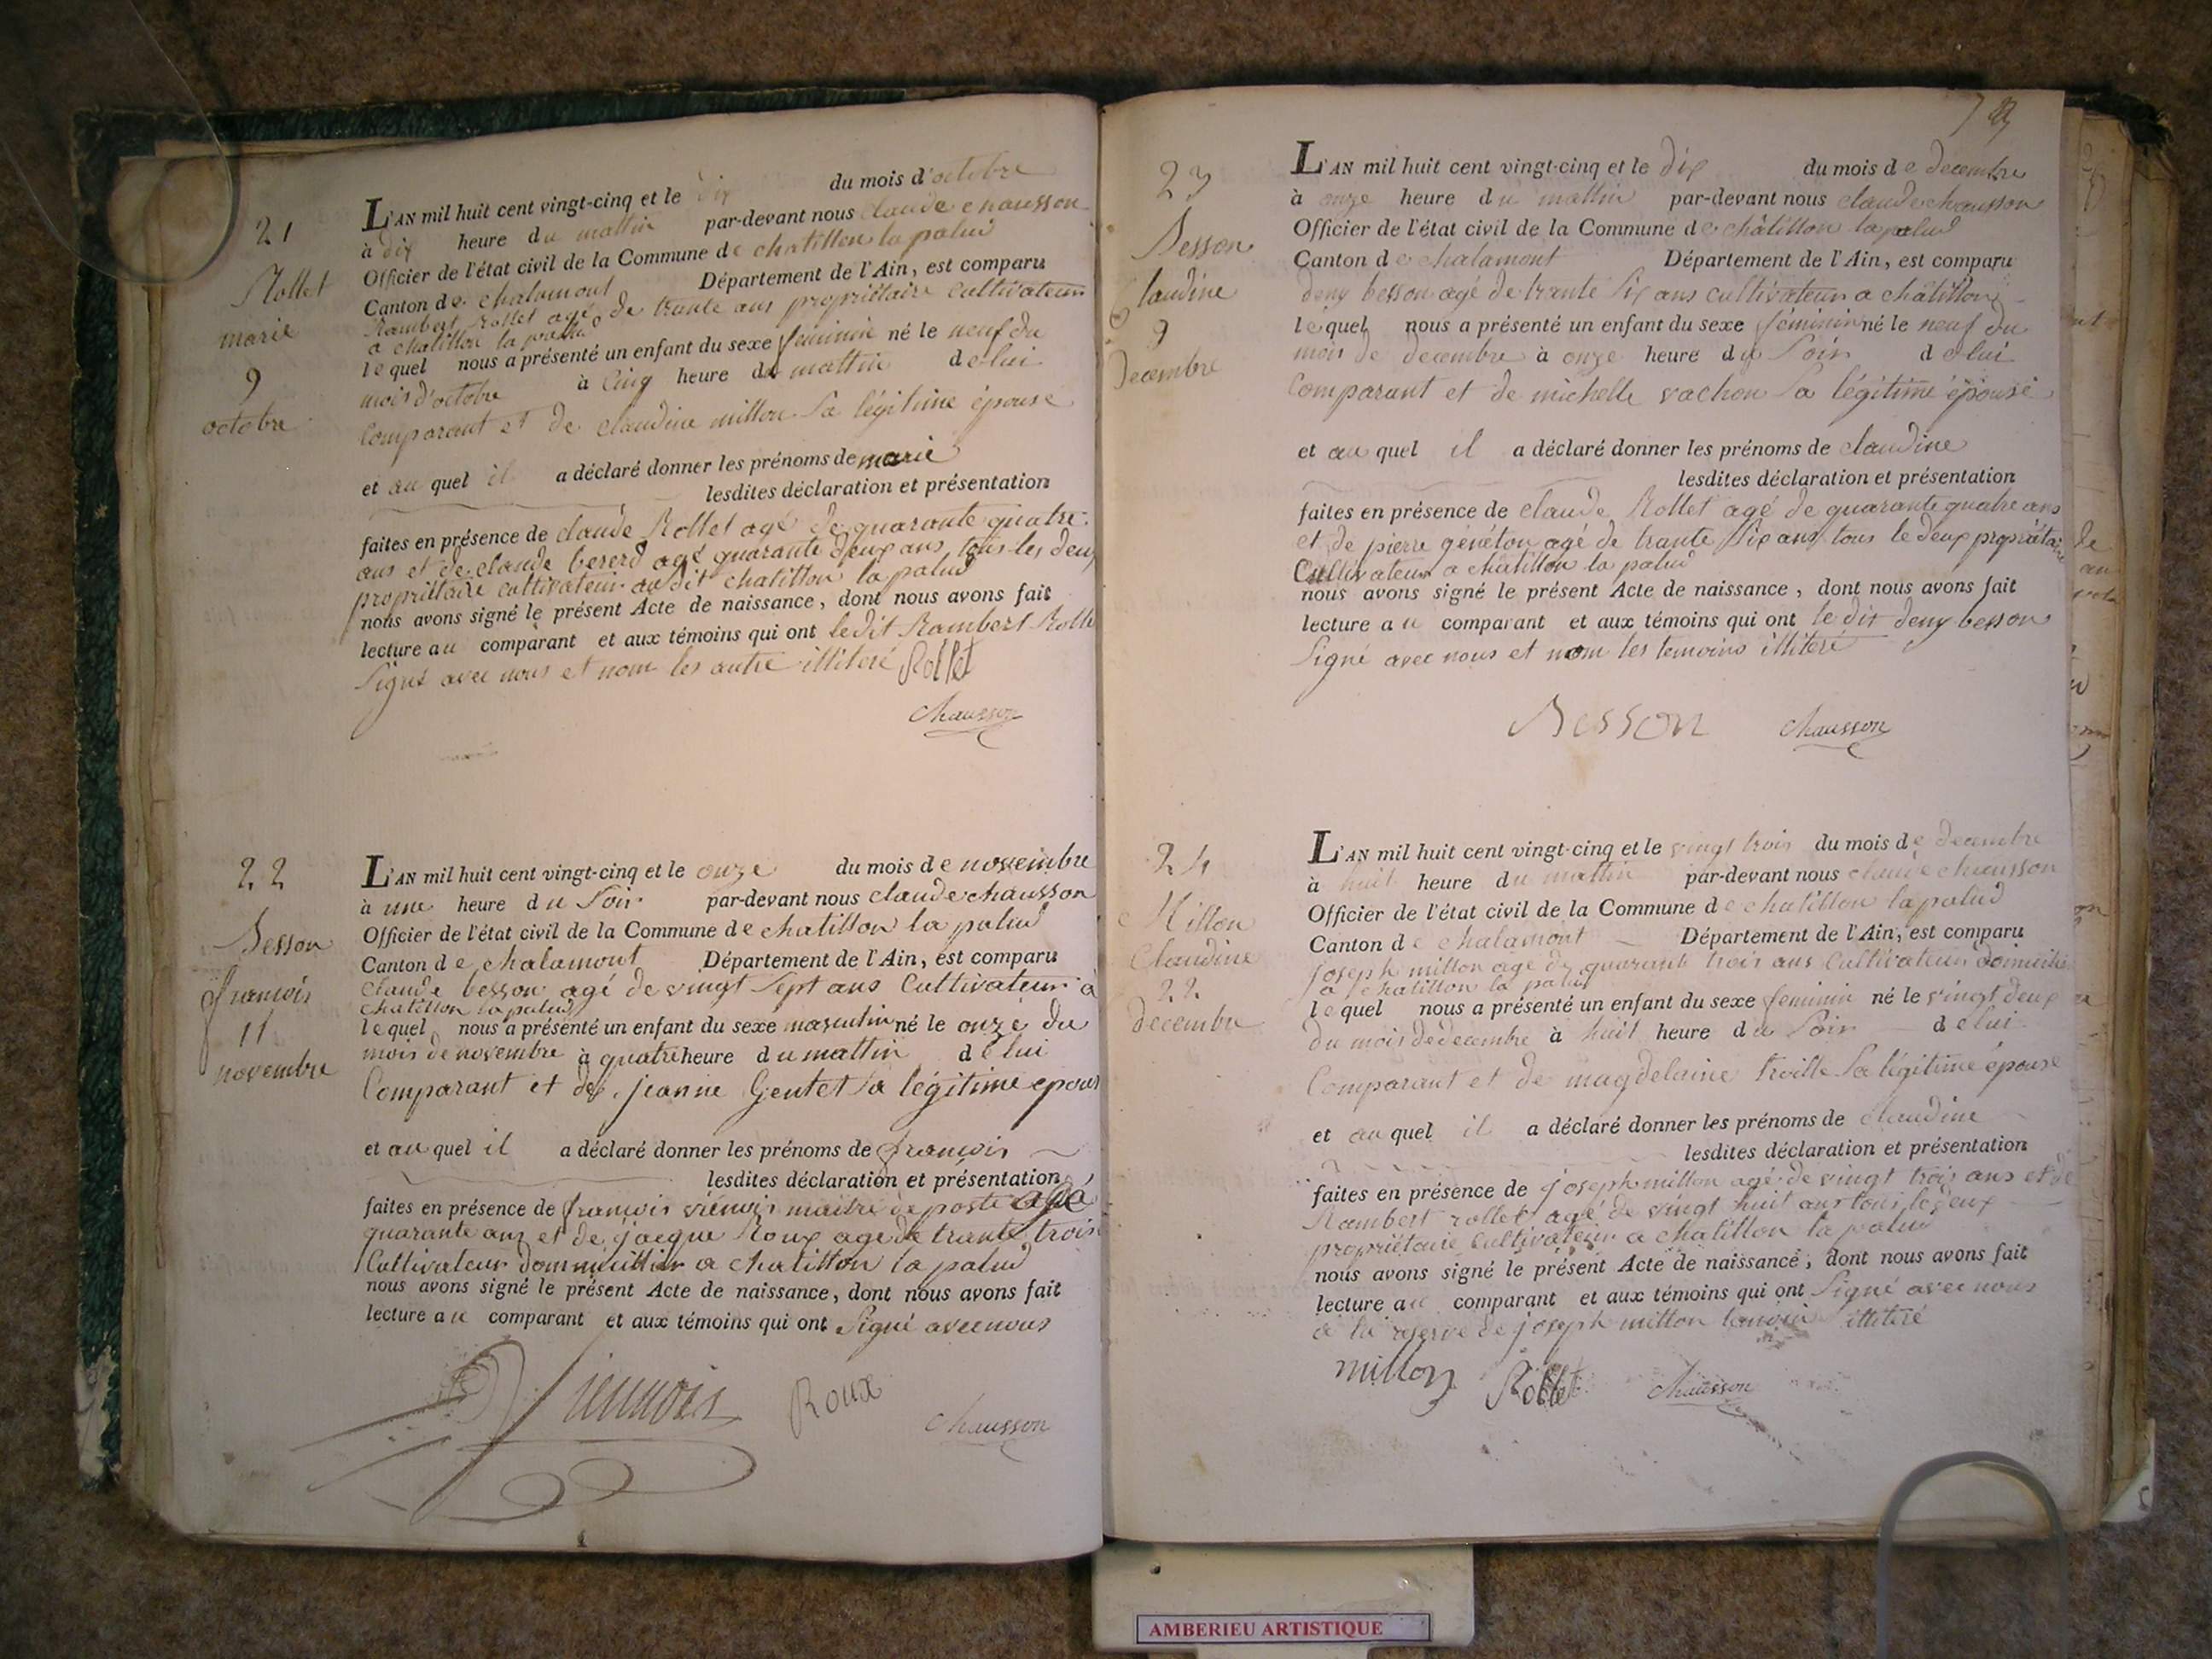 21
Rollet
marie
9
octobre
L'AN mil huit cent vingt-cinq et le dix du mois d'octobre
à dix heure du mattin par-devant nous claude chausson
Officier de l'état civil de la Commune de chatillon la palud
Canton de chalamont Département de l'Ain, est comparu
Rambert Rollet agé de trante ans propriétaire cultivateur
a chatillon la palud
lequel nous a présenté un enfant du sexe feminin né le neuf du
mois d'octobre à cinq heure du mattin de lui
Comparant et de claudine millon sa légitime épouse
et au quel il a déclaré donner les prénoms de marie
lesdites déclaration et présentation
faites en présence de claude Rollet agé de quarante quatre
ans et de claude bererd agé quarante deux ans, tous les deux
propriétaire cultivateur audit chatillon la palud
nous avons signé le présent Acte de naissance, dont nous avons fait
lecture au comparant et aux témoins qui ont ledit Rambert Rolle
Signé avec nous et nom les autre illiteré Rollet
chausson
22
Besson
francois
11
novembre
L'AN mil huit cent vingt-cinq et le onze du mois de novembre
à une heure du Soir par-devant nous claude chausson
Officier de l'état civil de la Commune de chatillon la palud
Canton de chalamont Département de l'Ain, est comparu
Claude besson agé de vingt sept ans Cultivateur à
chatillon la palud
lequel nous a présenté un enfant du sexe masculin né le onze du
mois de novembre à quatre heure du mattin de lui
Comparant et de jeanne Gentet sa légitime epous
et au quel il a déclaré donner les prénoms de francois
lesdites déclaration et présentation
faites en présence de francois viénois maitre de poste agé
quarante ans et de jacque Roux age de trante trois
Cultivateur a chatillon la palud
nous avons signé le présent Acte de naissance, dont nous avons fait
lecture au comparant et aux témoins qui ont Signé avec nous
Roux
chausson
23
Besson
Claudine
9
Decembre
L'AN mil huit cent vingt-cinq et le dix du mois de decembre
à onze heure du mattin par-devant nous claude chausson
Officier de l'état civil de la Commune de châtillon la palud
Canton de chalamont Département de l'Ain, est comparu
deny besson agé de trante six ans cultivateur a châtillon
lequel nous a présenté un enfant du sexe féminin né le neuf du
mois de decembre à onze heure du Soir de lui
Comparant et de michelle vachon sa légitime épouse
et au quel il a déclaré donner les prénoms de claudine
lesdites déclaration et présentation
faites en présence de claude Rollet agé de quarante quatre ans
et de pierre généton agé de trante six ans tous le deux propriétaire
Cultivateur a châtillon la palud
nous avons signé le présent Acte de naissance, dont nous avons fait
lecture au comparant et aux témoins qui ont le dit deny besson
Signé avec nous et nom les temoins illiteré
Besson chausson
24
Millon
Claudine
22
decembre
L'AN mil huit cent vingt-cinq et le vingt trois du mois de decembre
à huit heure du mattin par-devant nous claude chausson
Officier de l'état civil de la Commune de chatillon la palud
Canton de chalamont Département de l'Ain, est comparu
joseph millon agé de quarante trois ans Cultivateur domicilié
a chatillon la palud
lequel nous a présenté un enfant du sexe feminin né le vingt deux
du mois de decembre à huit heure du Soir de lui
Comparant et de magdelaine troille sa légitime épouse
et au quel il a déclaré donner les prénoms de claudine
lesdites déclaration et présentation
faites en présence de joseph millon agé de vingt trois ans et de
Rambert rollet agé de vingt huit ans tous le deux
propriétaire Cultivateur a chatillon la palud
nous avons signé le présent Acte de naissance, dont nous avons fait
lecture au comparant et aux témoins qui ont Signé avec nous
a la reserve de joseph millon temoin illiteré
millon Rollet chausson
AMBERIEU ARTISTIQUE